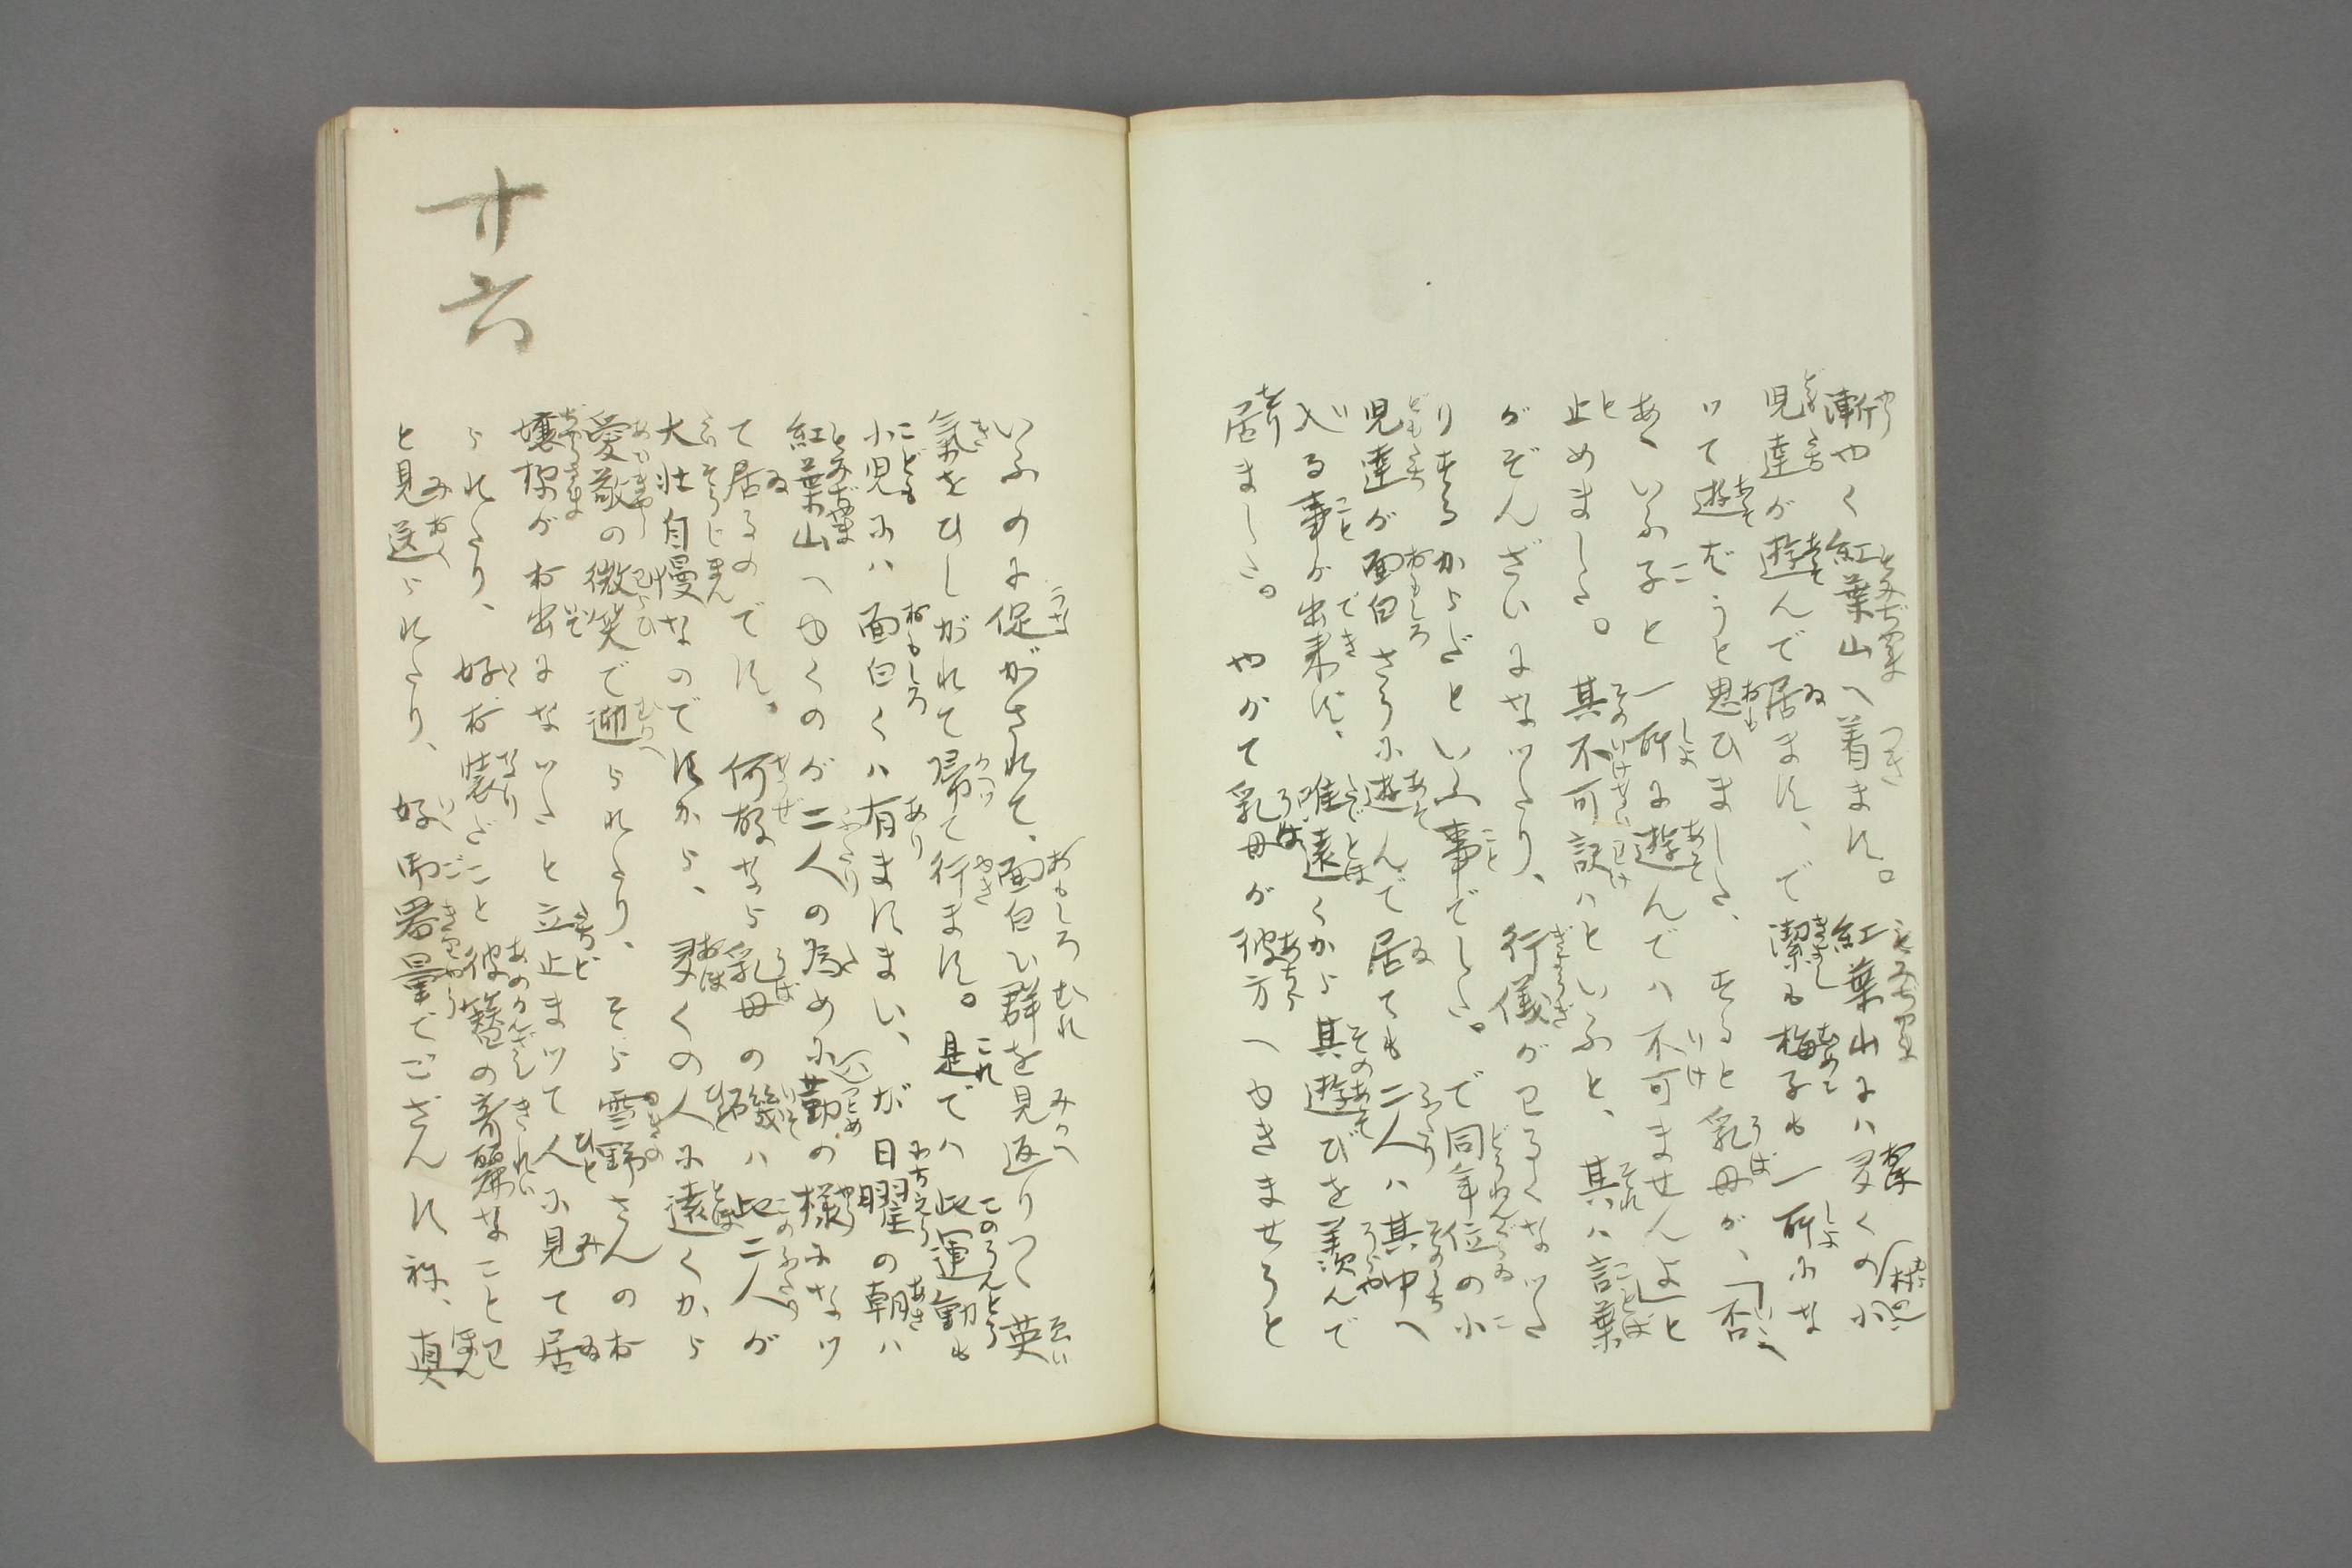 漸やく紅葉山へ着ます。紅葉山には多くの小
児達が遊んで居ます、で潔も梅子も一所にな
ツて遊ばうと思ひました、すると乳母が、「否
あゝいふ子と一所に遊んでハ不可ませんよ」と
止めました。其不可訳ハといふと、其ハ言葉
がぞんざいになツたり、行儀がわるくなツた
りするからだといふ事でした。で同年位の小
児達が面白さうに遊んで居ても二人ハ其中へ
入る事が出来ず、唯遠くから其遊びを羨んで
居ました。やがて乳母が彼方へゆきませうと
いふのに促がされて、面白い群を見返りつゝ英
氣をひしがれて帰て行ます。是でハ此運動も
小児にハ面白くハ有ますまい、が日曜の朝ハ
紅葉山へゆくのが二人の為めに勤の様になツ
て居るのです。何故なら乳母の磯ハ此二人が
大壮自慢なのですから、多くの人に遠くから
愛敬の微笑で迎られたり、そら雪野さんのお
嬢様がお出になツたと立止まツて人に見て居
られたり、好お装だこと彼簪の奇麗なことわ
と見送られたり、好御器量でござんす祢、真
廿六